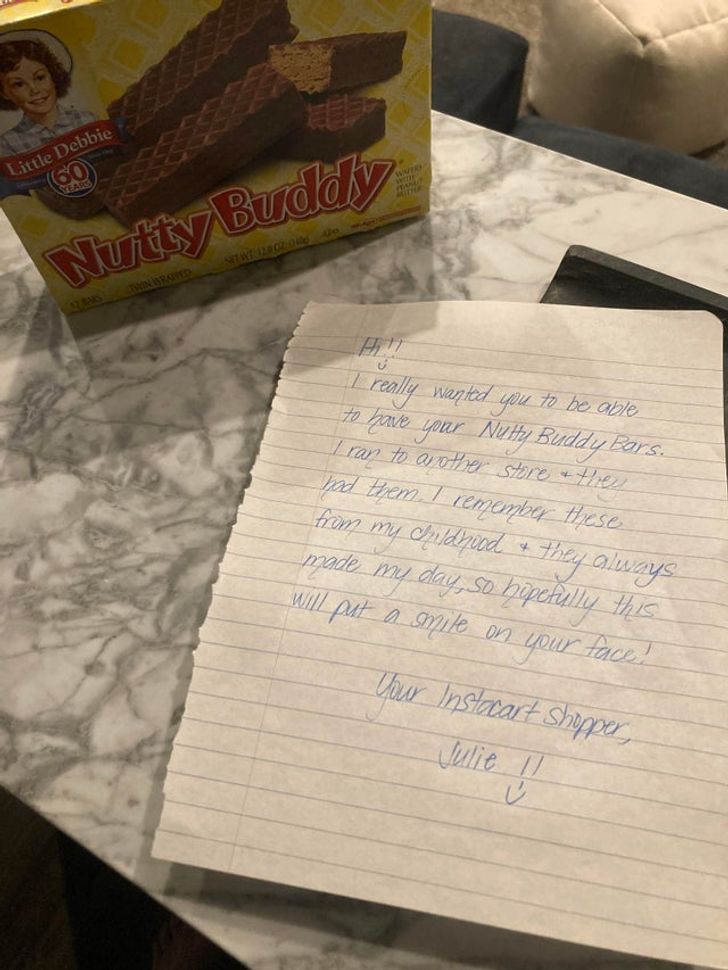 Little Debbie
60
YEARS
Nutty Buddy
WAFERS
WITH
PEANUT
BUTTER
12 BARS
TWIN WRAPPED
NET WT 12.0 OZ (340g)
Hi!!
I really wanted you to be able
to have your Nutty Buddy Bars.
I ran to another store & they
had them. I remember these
from my childhood & they always
made my day, so hopefully this
will put a smile on your face!
Your Instacart shopper,
Julie !!